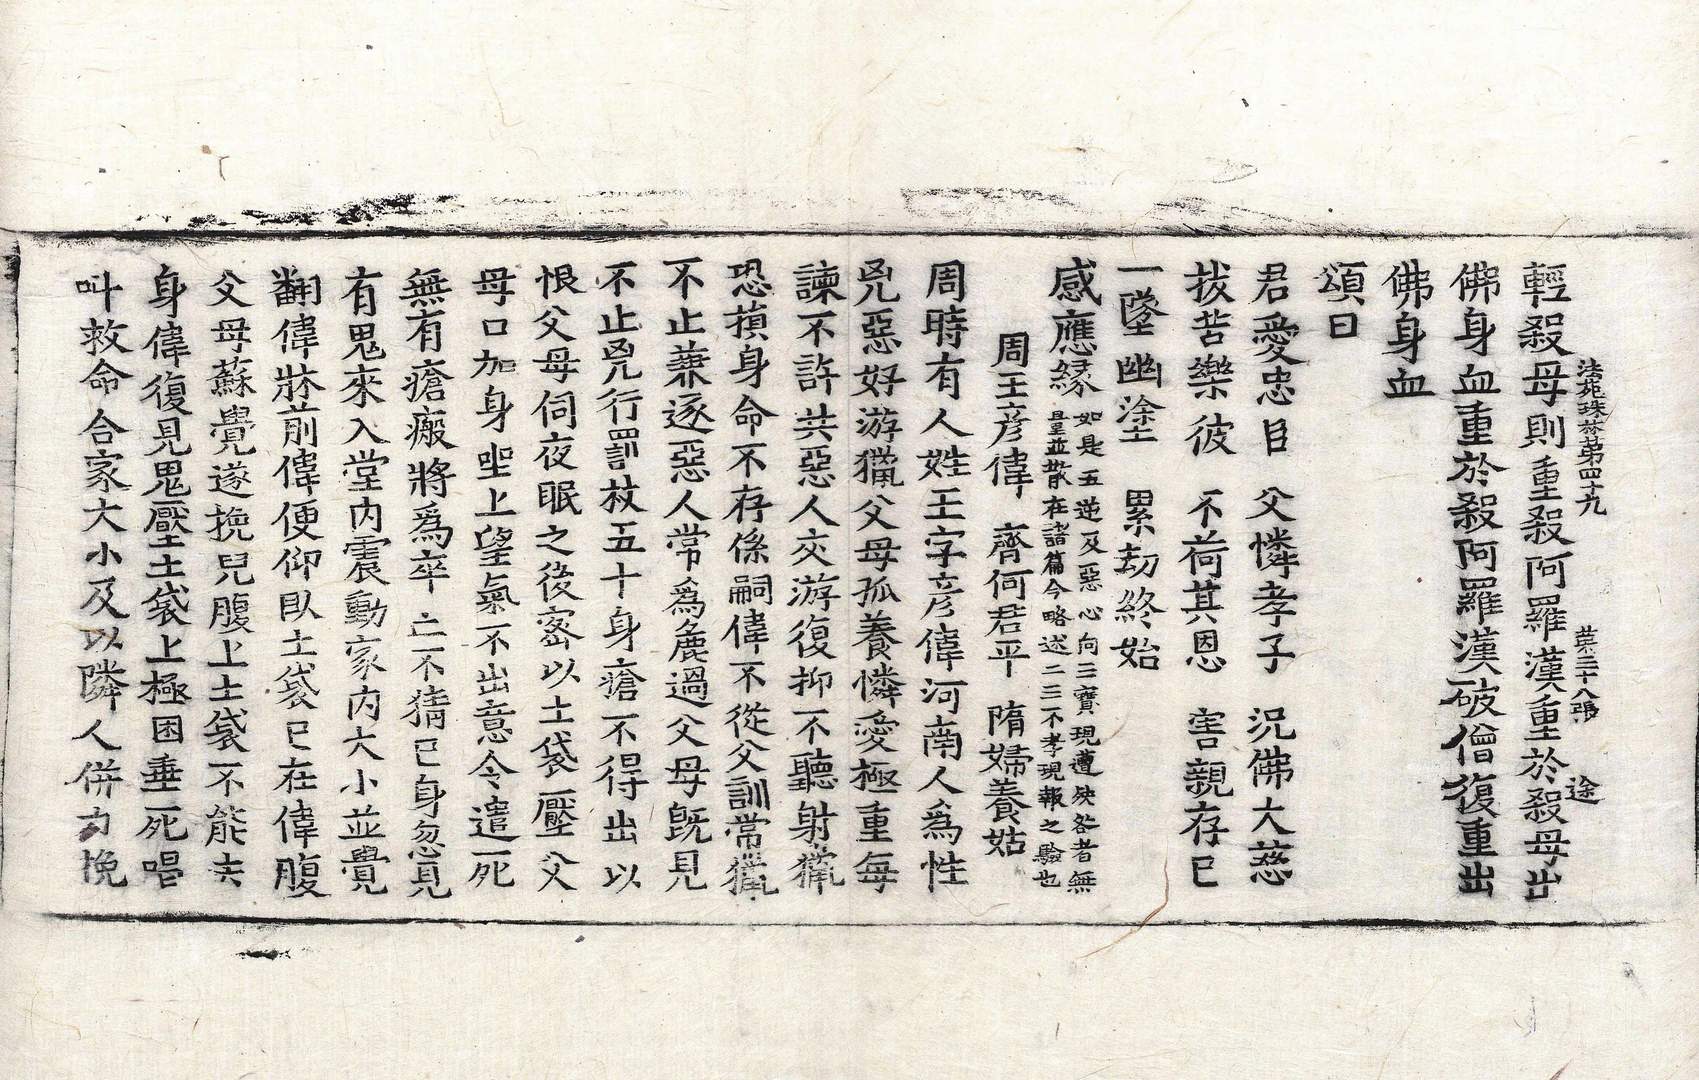 法苑珠林第四十九　第三十八張　途
輕殺母則重殺阿羅漢重於殺母出
佛身血重於殺阿羅漢破僧復重出
佛身血
頌曰
君愛忠臣　父憐孝子　況佛大慈
拔苦樂彼　不荷其恩　害親存己
一墜幽塗　累劫終始
感應緣如是五逆及惡心向三寶現遭殃咎者無
量並散在諸篇今略述二三不孝現報之驗也
周王彥偉　齊何君平　隋婦養姑
周時有人姓王字彥偉河南人爲性
兇惡好游獵父母孤養憐愛極重每
諫不許共惡人交游復抑不聽射獵
恐損身命不存係嗣偉不從父訓常獵
不止兼逐惡人常爲麁過父母旣見
不止兇行罰杖五十身瘡不得出以
恨父母伺夜眠之後密以土袋壓父
母口加身坐上望氣不出意令遣死
無有瘡瘢將爲卒亡不猜己身忽見
有鬼來入堂內震動家內大小並覺
翻偉牀前偉便仰臥土袋已在偉腹
父母蘇覺遂挽兒腹上土袋不能去
身偉復見鬼壓土袋上極困垂死唱
叫救命合家大小及以隣人併力挽